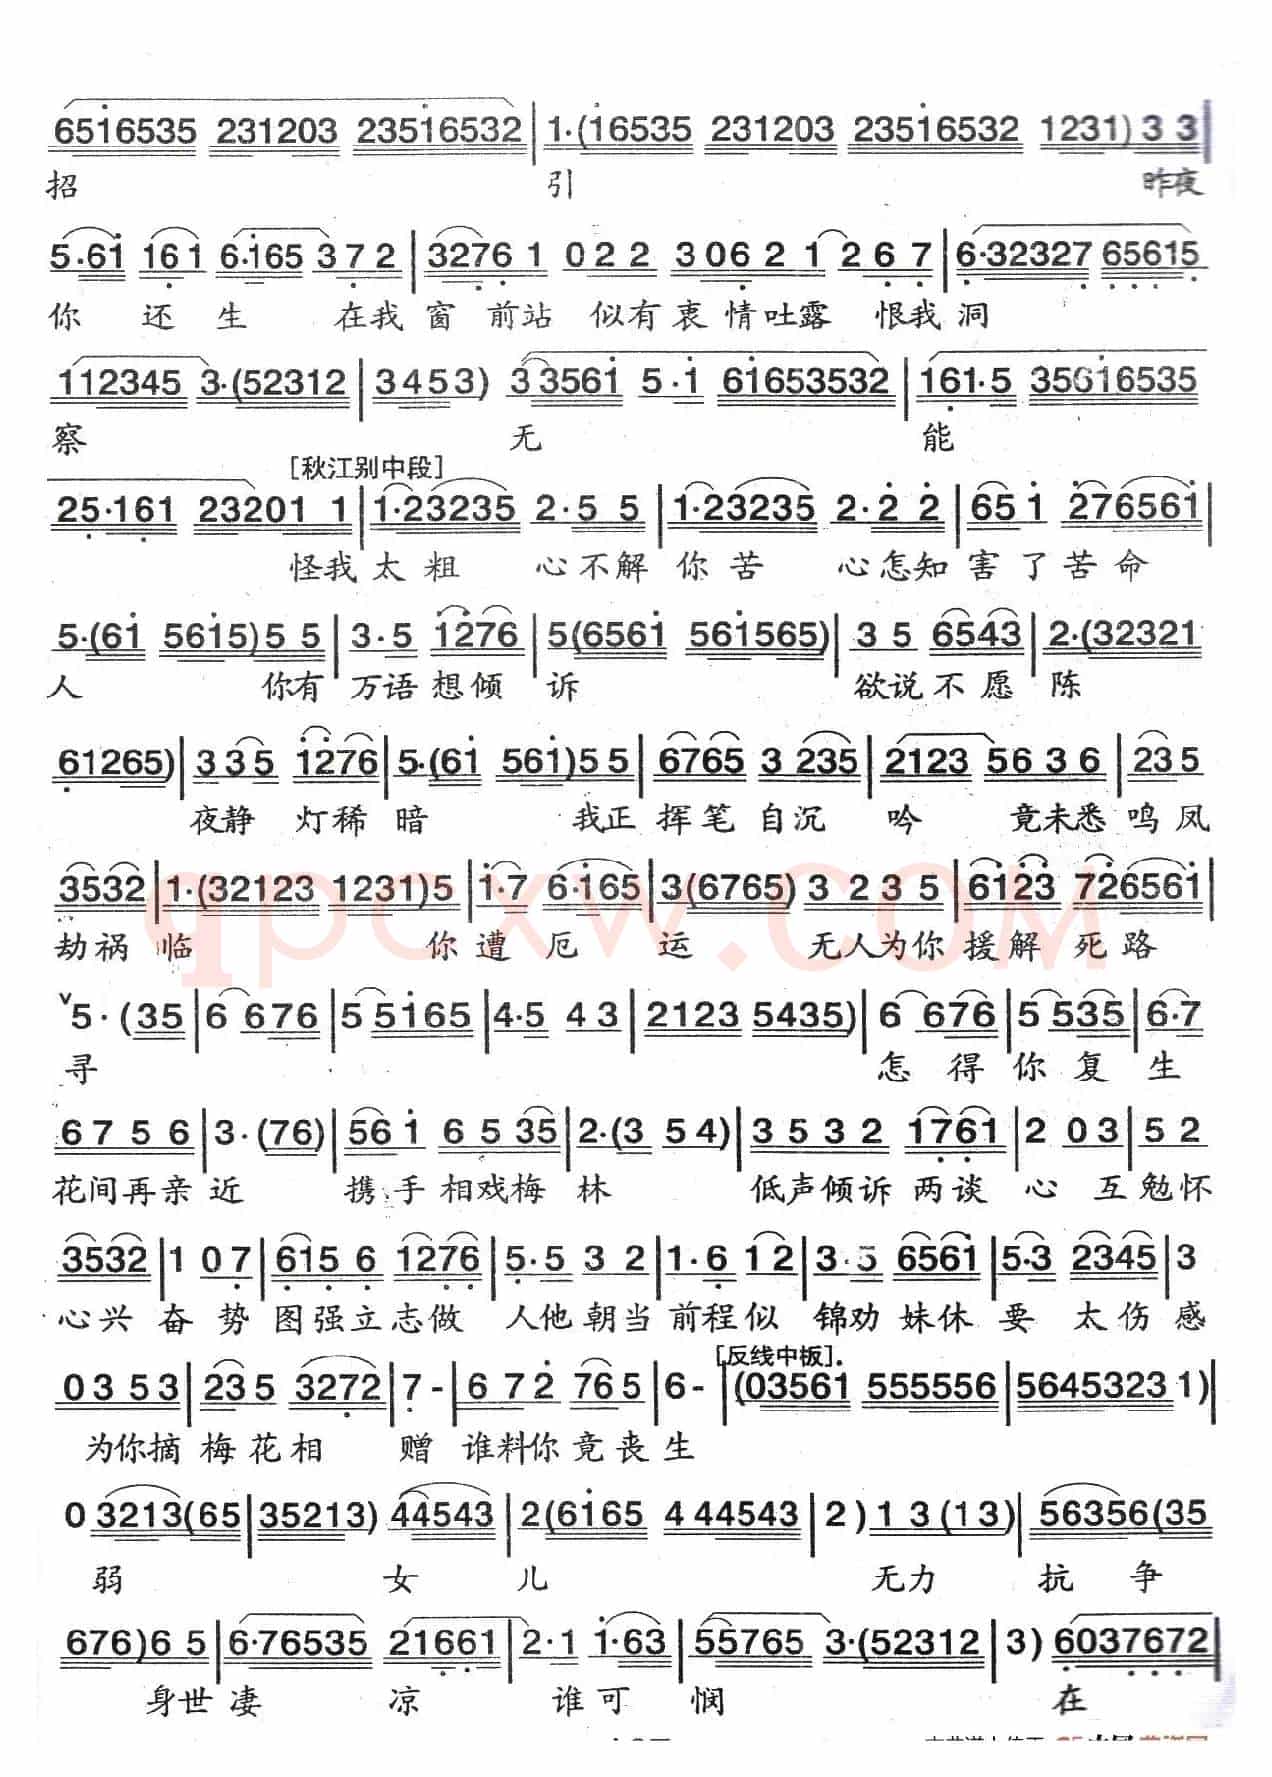 651̇6535 231203 2351̇6532 | 1·(1̇6535 231203 2351̇6532 1231) 3 3 |
招 引 昨夜
5·61̇ 1̇61̇ 6·1̇65 3 7 2 | 3276 1 0 2 2 3 0 6 2 1 2 6 7 | 6·32327 65615
你 还 生 在我 窗 前站 似有 衷 情吐露 恨我 洞
112345 3·(52312 | 3 4 5 3) 3 3561̇ 5·1̇ 61̇653532 | 161·5 3561̇6535
察 无 能
[秋江别中段]
25·161 23201 1 | 1·23235 2·5 5 | 1·23235 2·2̇ 2̇ | 65 1̇ 2̇76561̇ |
怪我 太 粗 心 不解 你 苦 心 怎知 害 了 苦 命
5·(61̇ 561̇5) 5 5 | 3·5 1̇2̇76 | 5(6561̇ 561̇565) | 3 5 6543 | 2·(32321
人 你有 万语 想倾 诉 欲说 不 愿 陈
61265) | 3 3 5 1̇2̇76 | 5·(61̇ 561̇) 5 5 | 6765 3 235 | 2123 5 6 3 6 | 23 5
夜静 灯稀 暗 我正 挥笔 自沉 吟 竟未悉 鸣 凤
3532 | 1·(32123 1231) 5 | 1̇·7 6·1̇65 | 3(6765) 3 2 3 5 | 61̇2̇3̇ 7 2̇6561̇ |
劫祸 临 你 遭 厄 运 无人为你 援解 死 路
5·(35 | 6 676 | 5 51̇65 | 4·5 4 3 | 2123 5435) | 6 676 | 5 535 | 6·7
寻 怎 得 你 复 生
6 7 5 6 | 3·(76) | 56 1̇ 6 5 35 | 2·(3 5 4) | 3 5 3 2 1761 | 2 0 3 | 5 2
花间再亲 近 携 手 相戏梅 林 低声倾诉 两谈 心 互 勉怀
3532 | 1 0 7 | 615 6 1276 | 5·5 3 2 | 1·6 1 2 | 3·5 6561̇ | 5·3 2345 | 3
心兴 奋 势 图强立志做 人他 朝当 前程似 锦劝 妹休 要 太伤 感
[反线中板].
0 3 5 3 | 23 5 3272 | 7 - | 6 7 2̇ 76 5 | 6 - | (03561 555556 | 5645323 1) |
为你摘 梅 花 相 赠 谁料你 竟 丧 生
0 3213(65 | 35213) 44543 | 2(61̇65 4 44543 | 2) 1 3 (1 3) | 56356(35
弱 女 儿 无力 抗 争
676) 6 5 | 6·76535 21661 | 2·1 1·63 | 55765 3·(52312 | 3) 6037672 |
身世 凄 凉 谁 可 悯 在
qpcxw.com